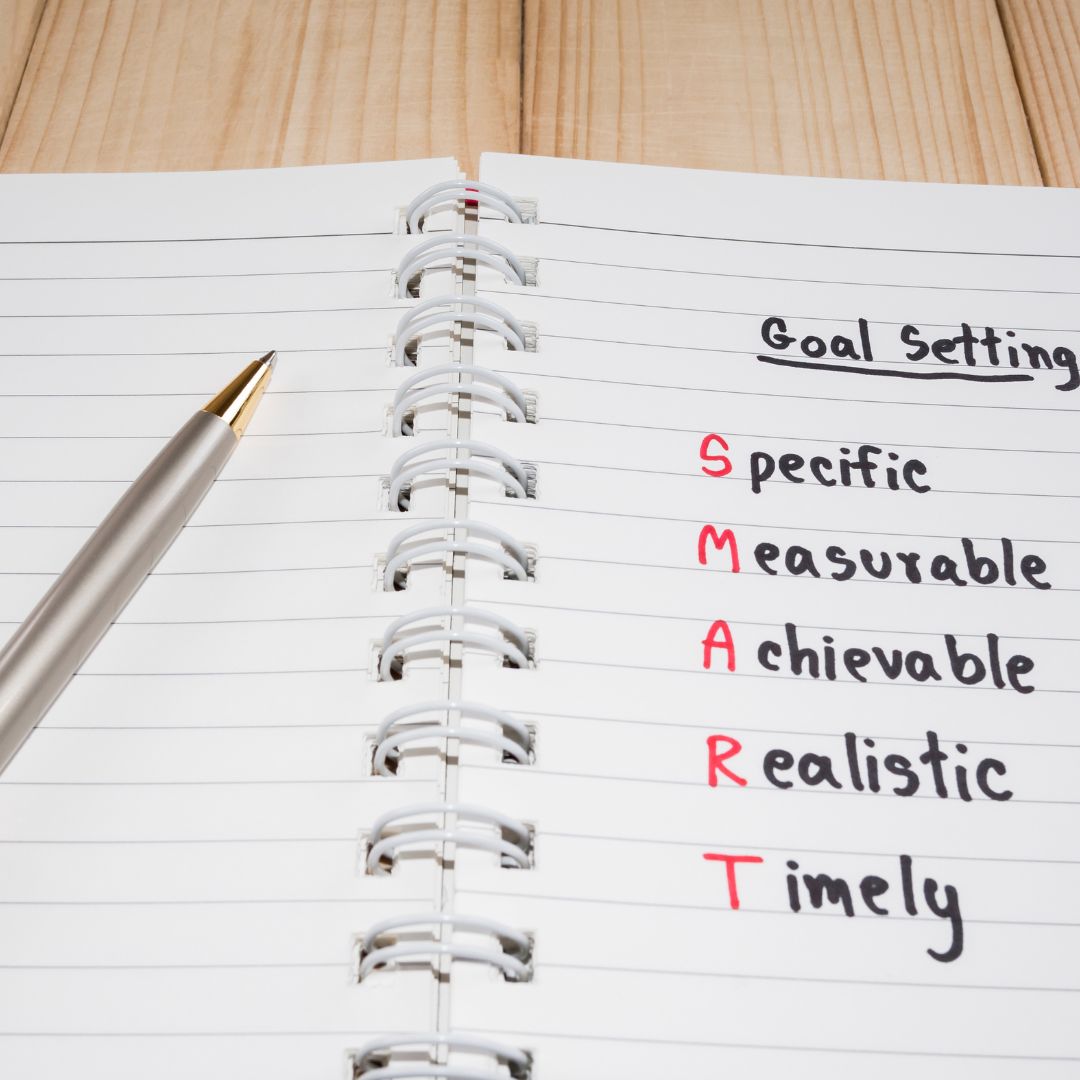 Goal Setting
Specific
Measurable
Achievable
Realistic
Timely